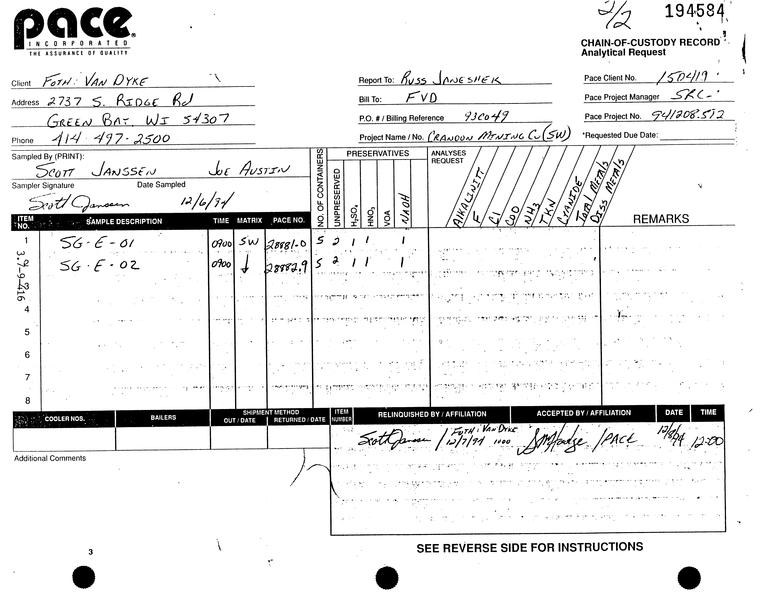 pace®
INCORPORATED
THE ASSURANCE OF QUALITY
2/2 194584
CHAIN-OF-CUSTODY RECORD
Analytical Request
Client FOTH: VAN DYKE
Address 2737 S. RIDGE Rd
GREEN BAY, WI 54307
Phone 414-497-2500
Report To: RUSS JANESHEK
Bill To: FVD
P.O. # / Billing Reference 93C049
Project Name / No. CRANDON MINING Co (SW)
Pace Client No. 150419
Pace Project Manager SRC
Pace Project No. 941208.512
*Requested Due Date:
Sampled By (PRINT):
SCOTT JANSSEN JOE AUSTIN
Sampler Signature Date Sampled
Scott Janssen 12/6/94
NO. OF CONTAINERS
PRESERVATIVES
UNPRESERVED
H₂SO₄
HNO₃
VOA
NAOH
ANALYSES
REQUEST
ALKALINITY
F
Cl
COD
NH3
TKN
CYANIDE
TOTAL METALS
DISS METALS
REMARKS
ITEM NO. SAMPLE DESCRIPTION TIME MATRIX PACE NO.
1 SG-E-01 0900 SW 28881.0 5 2 1 1 1
2 SG-E-02 0900 ↓ 28882.9 5 2 1 1 1
3
4
5
6
7
8
3.7-9-416
COOLER NOS. BAILERS SHIPMENT METHOD OUT / DATE RETURNED / DATE ITEM NUMBER RELINQUISHED BY / AFFILIATION ACCEPTED BY / AFFILIATION DATE TIME
Scott Janssen / FOTH: VAN DYKE 12/7/94 1000 /PACE 12/8/94 12:00
Additional Comments
3
SEE REVERSE SIDE FOR INSTRUCTIONS